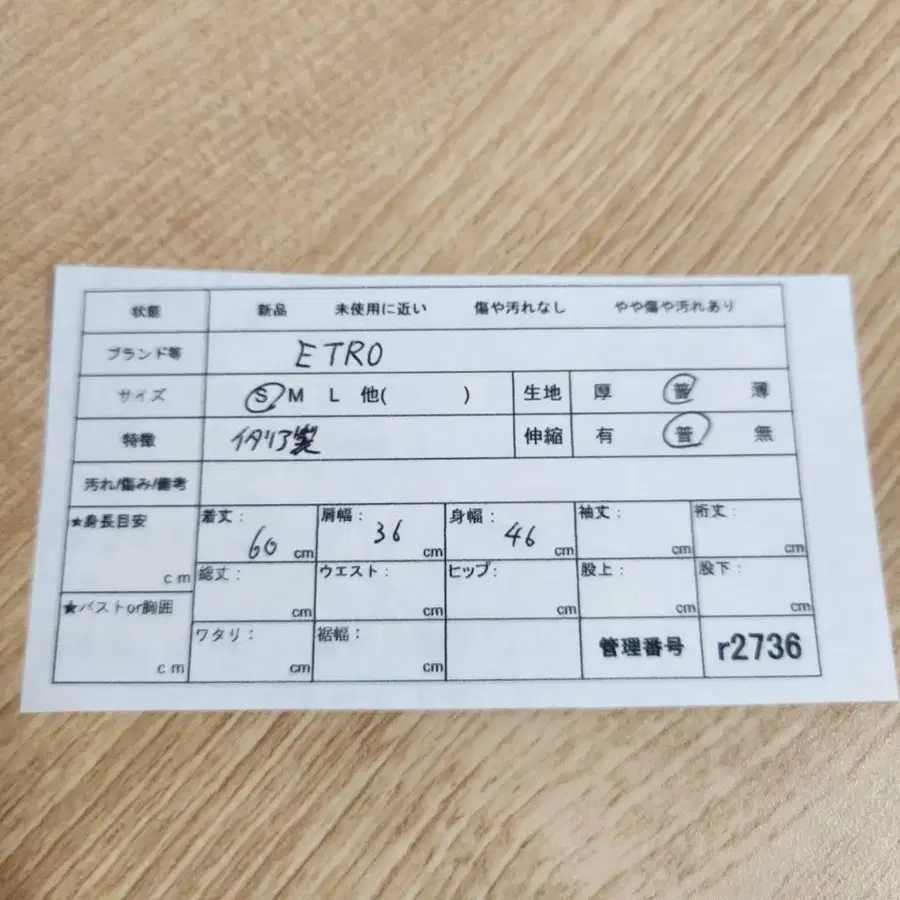 状態 新品 未使用に近い 傷や汚れなし やや傷や汚れあり
ブランド等 ETRO
サイズ S M L 他( ) 生地 厚 普 薄
特徴 イタリア製 伸縮 有 普 無
汚れ/傷み/備考
★身長目安 cm 着丈: 60 cm 肩幅: 36 cm 身幅: 46 cm 袖丈: cm 裄丈: cm
総丈: cm ウエスト: cm ヒップ: cm 股上: cm 股下: cm
★バストor胸囲 cm ワタリ: cm 裾幅: cm 管理番号 r2736